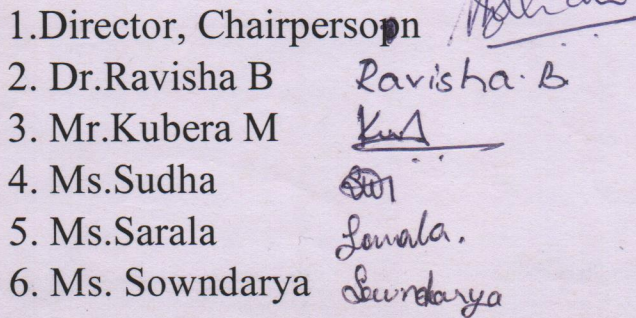 1.Director, Chairpersopn
2. Dr.Ravisha B Ravisha. B
3. Mr.Kubera M
4. Ms.Sudha
5. Ms.Sarala Sarala.
6. Ms. Sowndarya Sowndarya